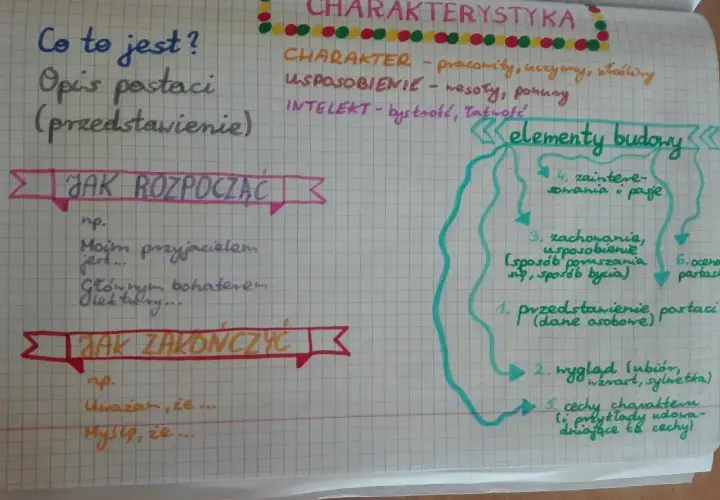 CHARAKTERYSTYKA
Co to jest?
Opis postaci
(przedstawienie)
CHARAKTER - pracowity, uczynny, złośliwy
USPOSOBIENIE - wesoły, ponury
INTELEKT - bystrość, łatwość
JAK ROZPOCZĄĆ
np.
Moim przyjacielem
jest...
Głównym bohaterem
lektury...
JAK ZAKOŃCZYĆ
np.
Uważam, że ...
Myślę, że ...
elementy budowy
4. zaintere-
sowania i pasje
3. zachowanie,
usposobienie
(sposób poruszania
się, sposób bycia)
6. ocena
postaci
1. przedstawienie postaci
(dane osobowe)
2. wygląd (ubiór,
wzrost, sylwetka)
5. cechy charakteru
(i przykłady udowa-
dniające te cechy)